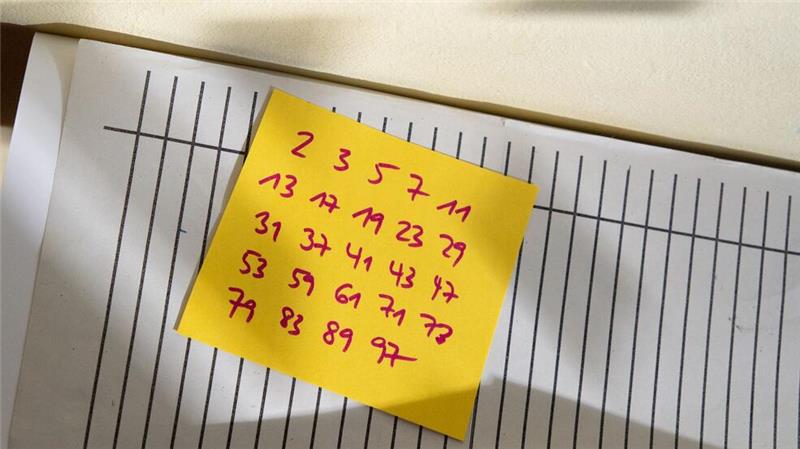 2 3 5 7 11
13 17 19 23 29
31 37 41 43 47
53 59 61 71 73
79 83 89 97